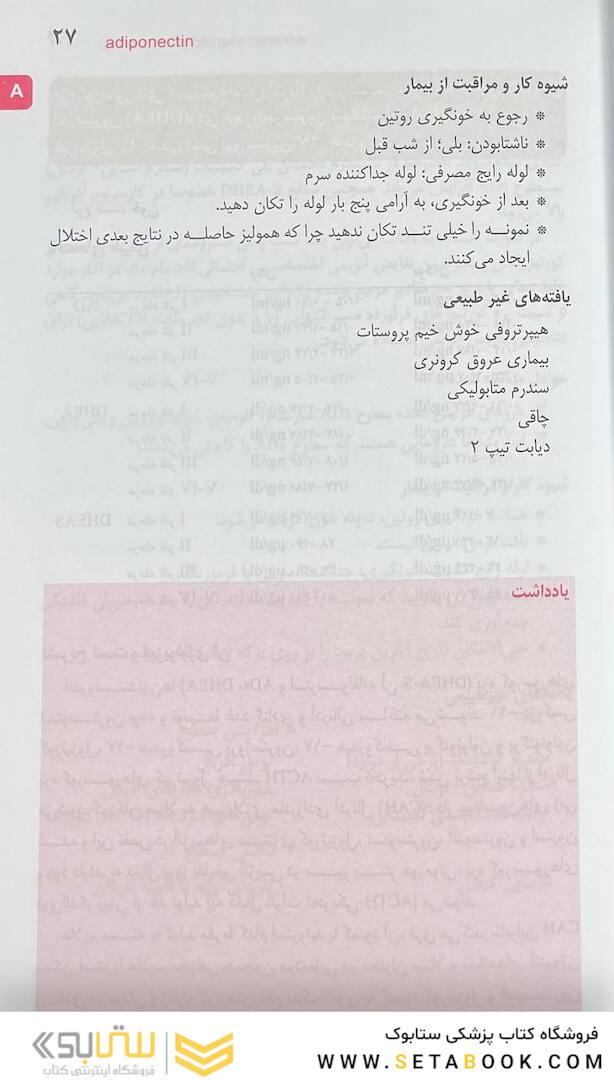 ۲۷ adiponectin
A
شیوه کار و مراقبت از بیمار
* رجوع به خونگیری روتین
* ناشتابودن: بلی؛ از شب قبل
* لوله رایج مصرفی: لوله جداکننده سرم
* بعد از خونگیری، به آرامی پنج بار لوله را تکان دهید.
* نمونه را خیلی تند تکان ندهید چرا که همولیز حاصله در نتایج بعدی اختلال
ایجاد می‌کنند.
یافته‌های غیر طبیعی
هیپرتروفی خوش خیم پروستات
بیماری عروق کرونری
سندرم متابولیکی
چاقی
دیابت تیپ ۲
یادداشت
فروشگاه کتاب پزشکی ستابوک
WWW.SETABOOK.COM
ستابوک
فروشگاه اینترنتی کتاب